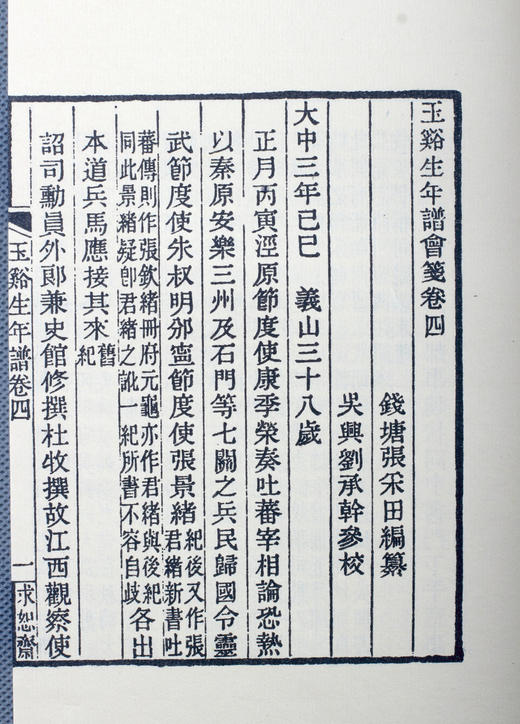 玉谿生年譜會箋卷四
錢塘張采田編纂
吳興劉承幹參校
大中三年己巳　義山三十八歲
正月丙寅涇原節度使康季榮奏吐蕃宰相論恐熱
以秦原安樂三州及石門等七關之兵民歸國令靈
武節度使朱叔明邠寧節度使張景緒紀後又作張君緒新書吐
蕃傳則作張欽緒冊府元龜亦作君緒與後紀同此景緒疑卽君緒之訛一紀所書不容自歧各出
本道兵馬應接其來舊紀
詔司勳員外郎兼史館修撰杜牧撰故江西觀察使
玉谿生年譜卷四　一　求恕齋